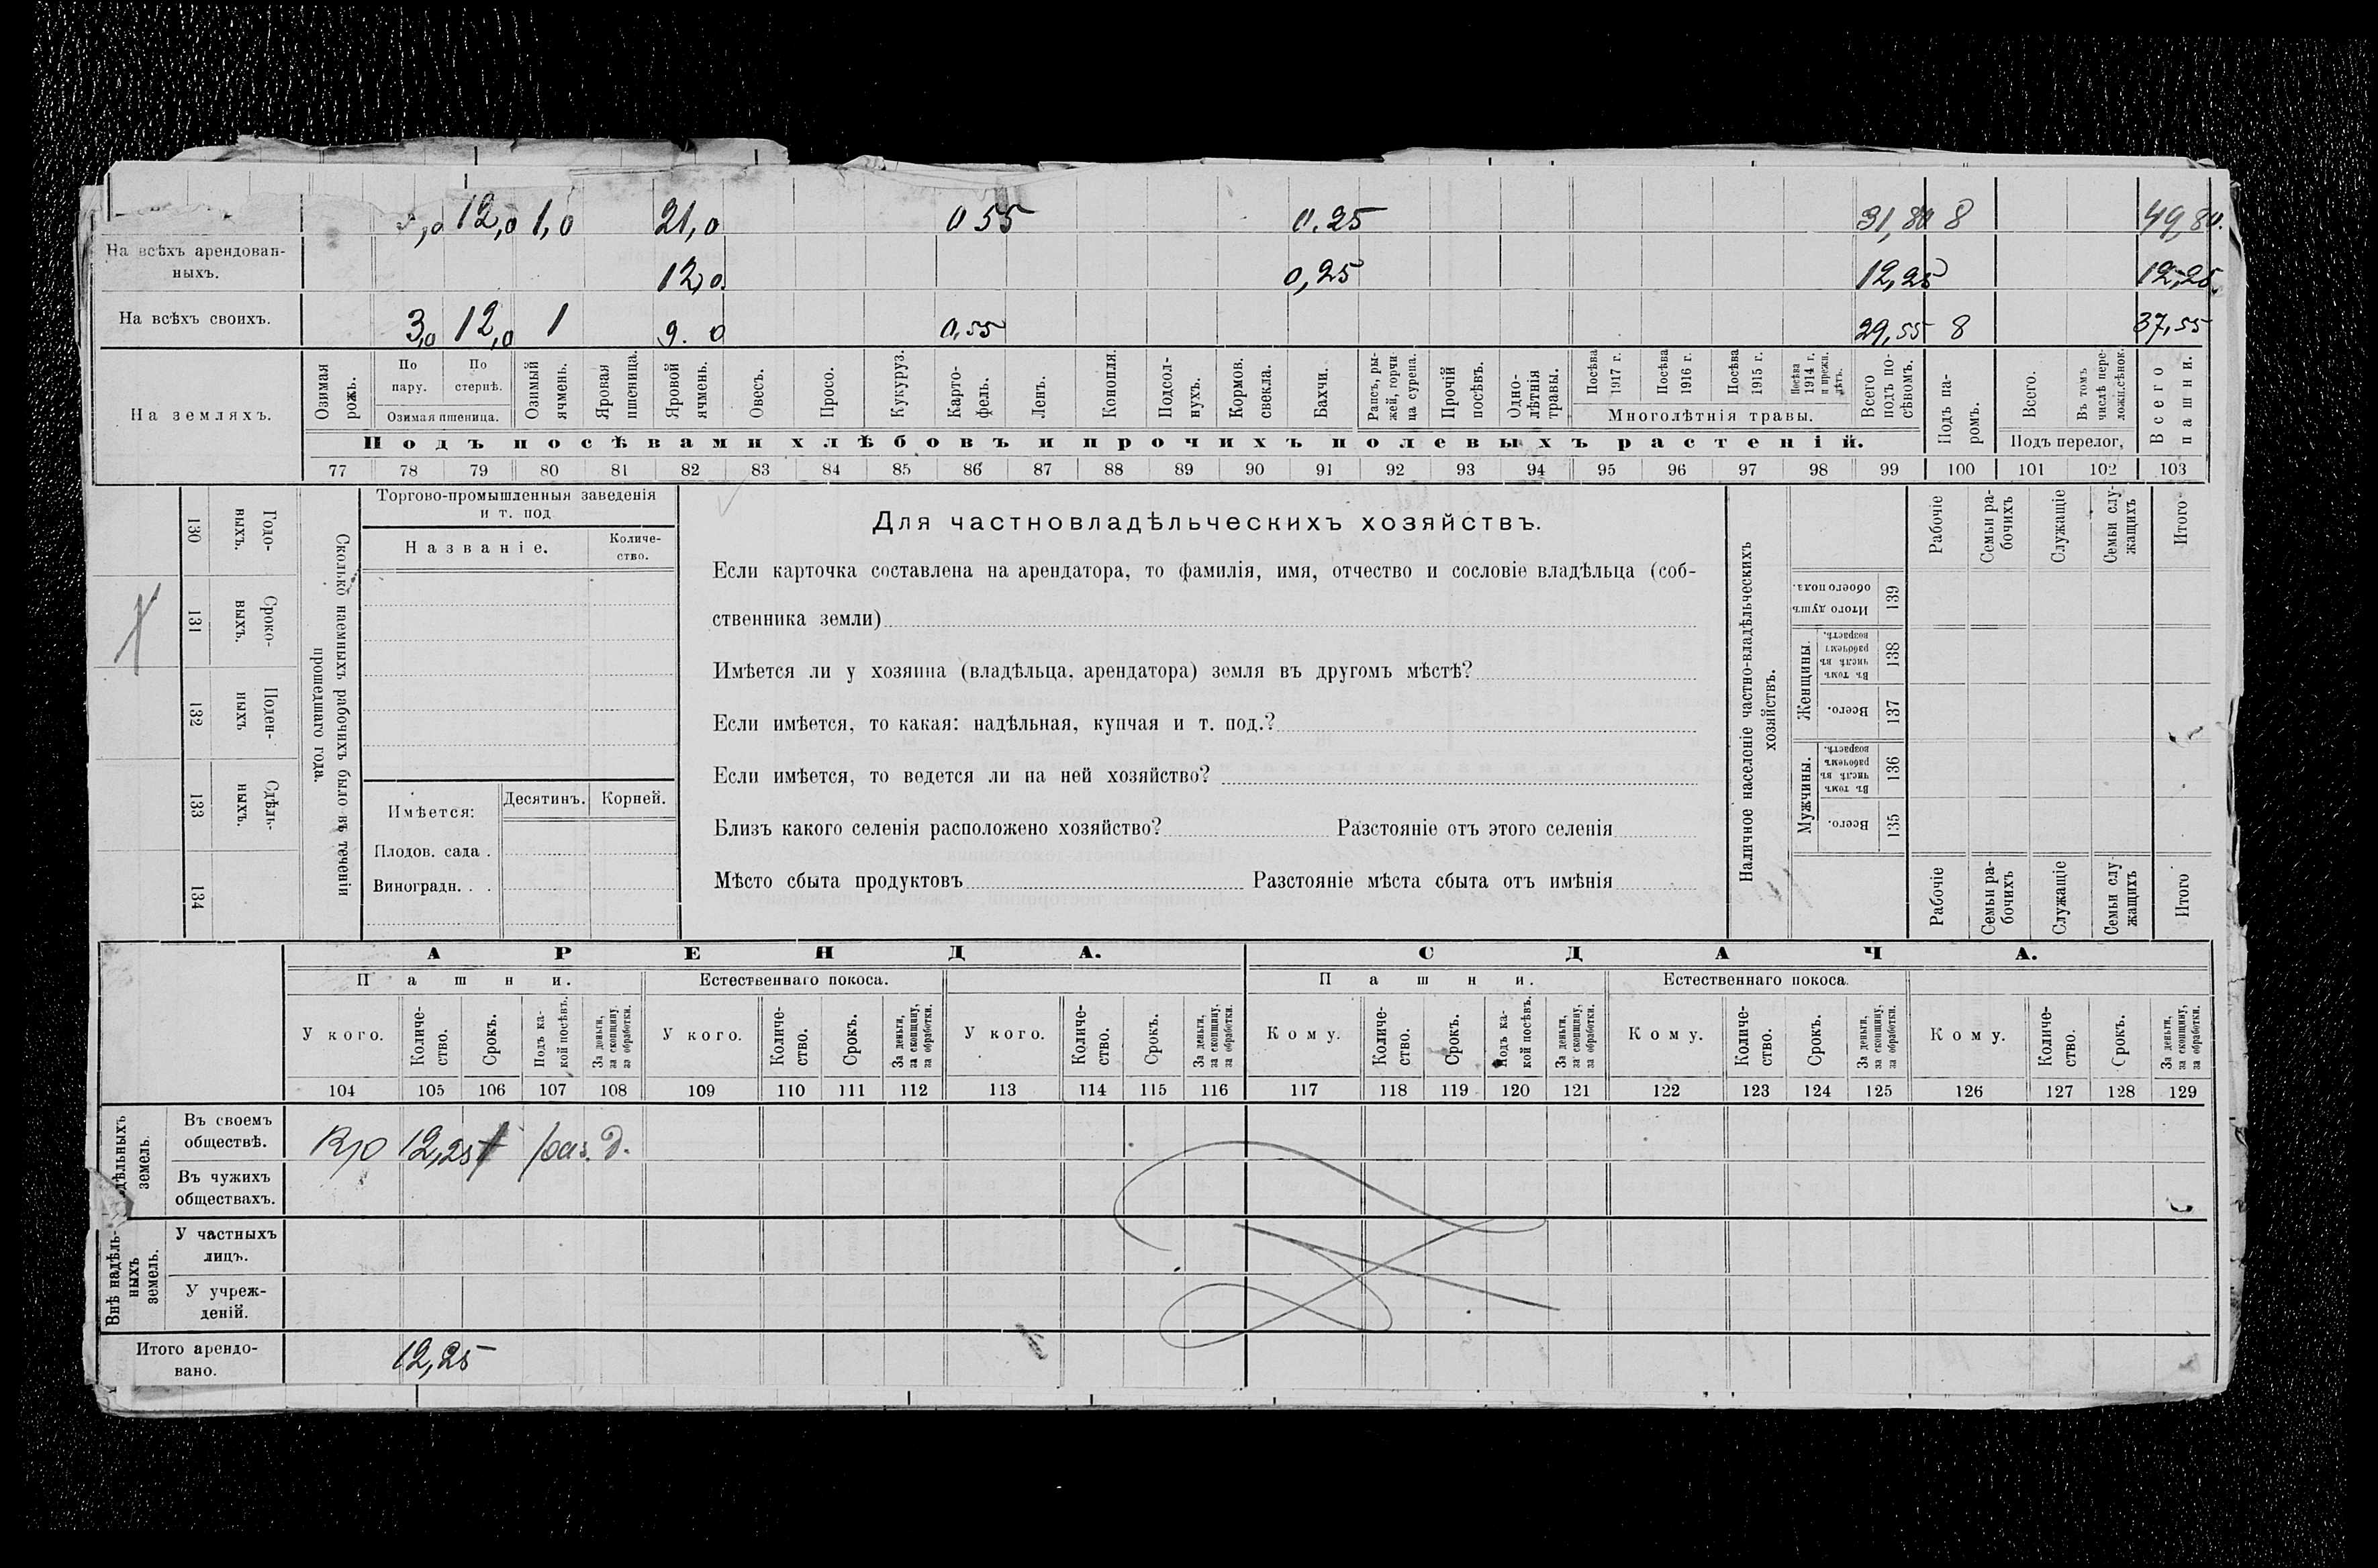 12,0 1,0 21,0 0 55 0.25 31,80 8 49,80.
На всѣхъ арендован-
ныхъ.
12,0. 0,25 12,25 12,25.
На всѣхъ своихъ. 3,0 12,0 1 9. 0 0,55 29,55 8 37,55
На земляхъ.
Озимая рожь.
По пару.
По стернѣ.
Озимая пшеница.
Озимый ячмень.
Яровая пшеница.
Яровой ячмень.
Овесъ.
Просо.
Кукуруз.
Карто-
фель.
Ленъ.
Конопля.
Подсол-
нухъ.
Кормов. свекла.
Бахчи.
Рапсъ, ры-
жей, горчи
ца сурепа.
Прочій посѣвъ.
Одно-
лѣтнія травы.
Посѣва 1917 г.
Посѣва 1916 г.
Посѣва 1915 г.
Посѣва 1914 г. и прежн. лѣтъ.
Многолѣтнія травы.
Всего подъ по-
сѣвомъ.
Подъ па-
ромъ.
Всего.
Въ томъ числѣ пере-
ложн.сѣнок.
Подъ перелог,
Всего пашни.
Подъ посѣвами хлѣбовъ и прочихъ полевыхъ растеній.
77 78 79 80 81 82 83 84 85 86 87 88 89 90 91 92 93 94 95 96 97 98 99 100 101 102 103
Годо-
выхъ.
130
Сроко-
выхъ.
131
Поден-
ныхъ
132
Сдѣль-
ныхъ.
133
134
Сколько наемныхъ рабочихъ было въ теченіи
прошедшаго года.
Торгово-промышленныя заведенія
и т. под
Названіе.
Количе-
ство.
Имѣется: Десятинъ. Корней.
Плодов. сада .
Виноградн. . .
Для частновладѣльческихъ хозяйствъ.
Если карточка составлена на арендатора, то фамилія, имя, отчество и сословіе владѣльца (соб-
ственника земли)
Имѣется ли у хозяина (владѣльца, арендатора) земля въ другомъ мѣстѣ?
Если имѣется, то какая: надѣльная, купчая и т. под.?
Если имѣется, то ведется ли на ней хозяйство?
Близъ какого селенія расположено хозяйство? Разстояніе отъ этого селенія
Мѣсто сбыта продуктовъ Разстояніе мѣста сбыта отъ имѣнія
Наличное населеніе частно-владѣльческихъ
хозяйствъ.
Рабочіе
Семьи ра-
бочихъ
Служащіе
Семьи слу-
жащихъ
Итого
Итого душъ обоего пола.
139
Женщины.
Въ томъ числѣ въ рабочемъ возрастѣ.
138
Всего.
137
Мужчины.
Въ томъ числѣ въ рабочемъ возрастѣ.
136
Всего.
135
Рабочіе
Семьи ра-
бочихъ
Служащіе
Семьи слу-
жащихъ
Итого
АРЕНДА. СДАЧА.
Пашни. Естественнаго покоса. Пашни. Естественнаго покоса.
У кого.
Количе-
ство.
Срокъ.
Подъ ка-
кой посѣвъ.
За деньги,
за скопщину,
за обработки.
У кого.
Количе-
ство.
Срокъ.
За деньги,
за скопщину,
за обработки.
У кого.
Количе-
ство.
Срокъ.
За деньги,
за скопщину,
за обработки.
Кому.
Количе-
ство.
Срокъ.
Подъ ка-
кой посѣвъ.
За деньги,
за скопщину,
за обработки.
Кому.
Количе-
ство.
Срокъ.
За деньги,
за скопщину,
за обработки.
Кому.
Количе-
ство.
Срокъ.
За деньги,
за скопщину,
за обработки.
104 105 106 107 108 109 110 111 112 113 114 115 116 117 118 119 120 121 122 123 124 125 126 127 128 129
дѣльныхъ
земель.
Въ своемъ
обществѣ.
12,25 д.
Въ чужихъ
обществахъ.
Внѣ надѣль-
ныхъ
земель.
У частныхъ
лицъ.
У учреж-
деній.
Итого арендо-
вано.
12,25